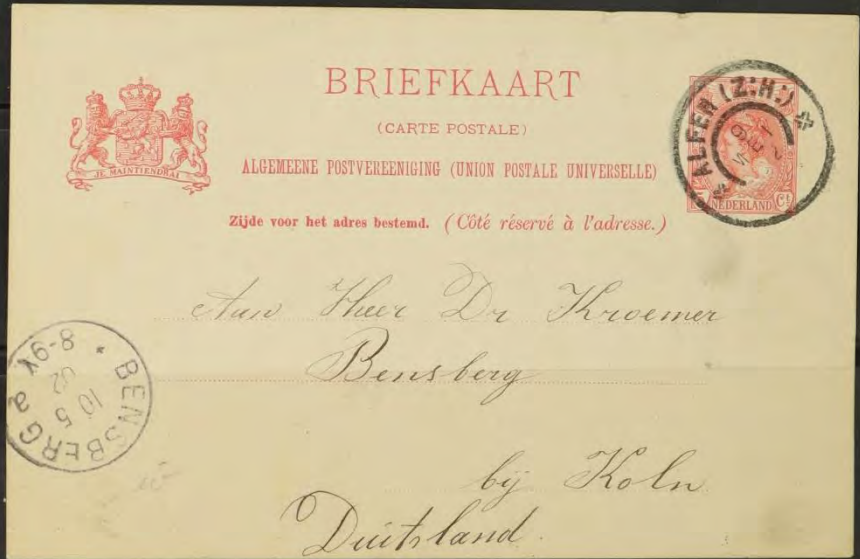 BRIEFKAART
(CARTE POSTALE)
ALGEMEENE POSTVEREENIGING (UNION POSTALE UNIVERSELLE)
Zijde voor het adres bestemd. (Côté réservé à l'adresse.)
JE MAINTIENDRAI
ALFEN (Z:H:)
NEDERLAND Ct
Aan Heer Dr Kroemer
Bensberg
bij Koln
Duitsland.
BENSBERG a
10 5
02
8-9V